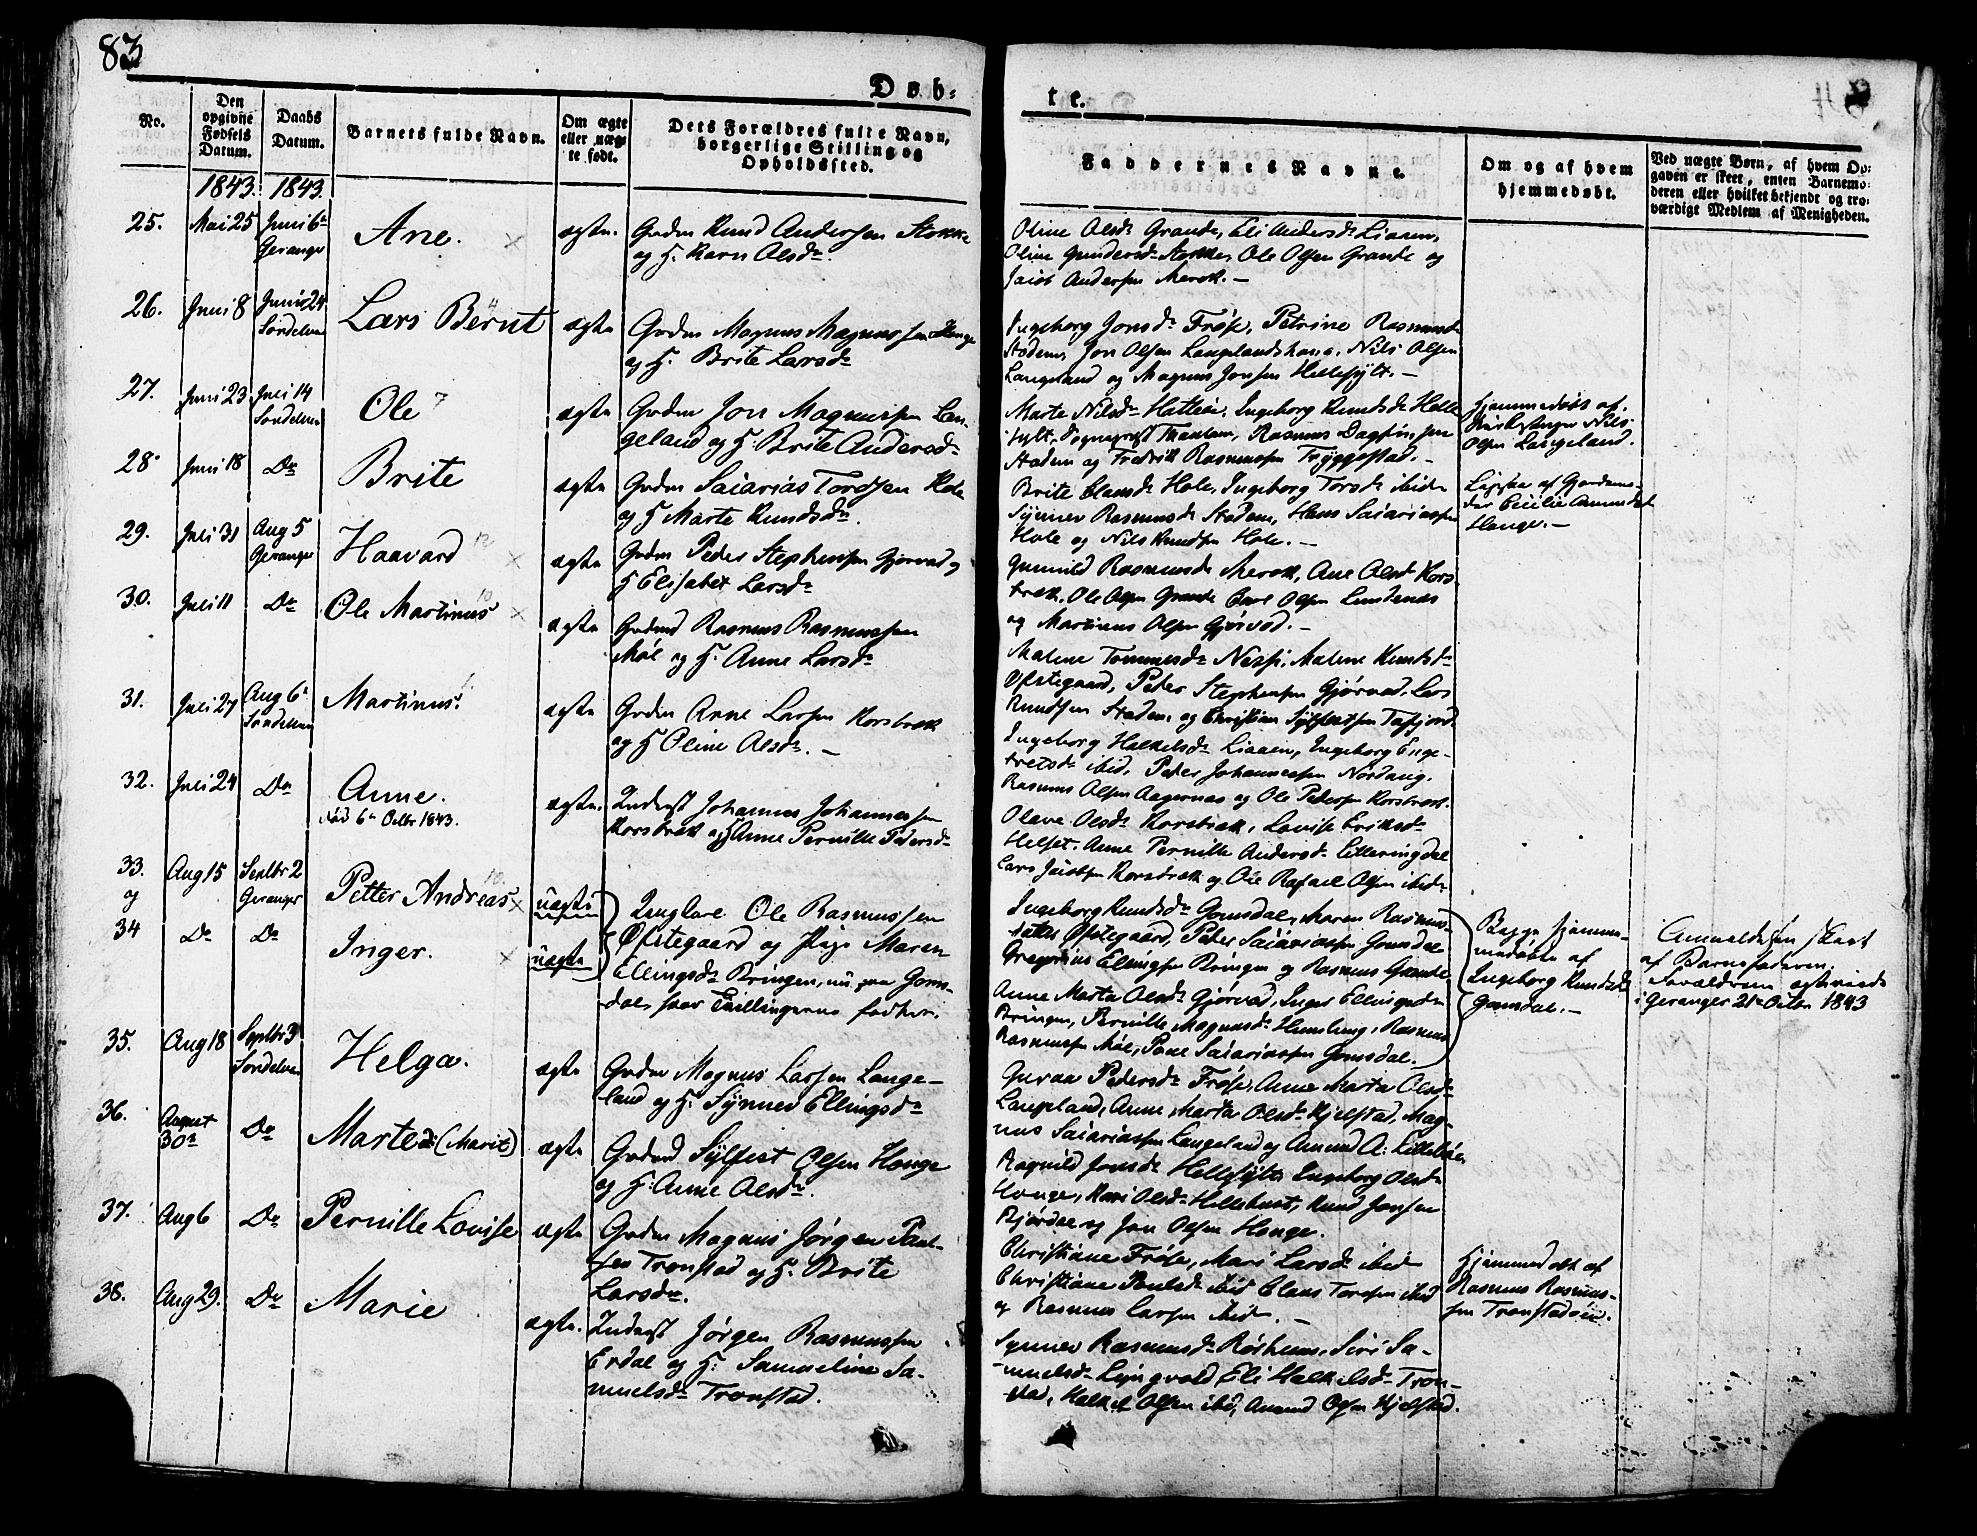 83
Døb-
te.
No.
Den opgivne Fødsels Datum.
Daabs Datum.
Barnets fulde Navn.
Om ægte eller uægte født.
Dets Forældres fulde Navn, borgerlige Stilling og Opholdssted.
Faddernes Navne.
Om og af hvem hjemmedøbt.
Ved uægte Børn, af hvem Opgaven er skeet, enten Barnemoderen eller hvilket bekjendt og troværdigt Medlem af Menigheden.
1843. 1843.
25. Mai 25 Juni 6te Geranger
Ane.
ægte.
Gmdm Knud Andersen Stokke
og H. Karn Olsdr.
Oline Olsdr Grande, Eli Andersdr Liaaen,
Oline Gundersdr Stokke, Ole Olsen Grande og
Jacob Andersen Merok. —
26. Juni 8 Juni 24 Søndelven
Lars Bernt
ægte
Gmdm Magnus Magnussen Houge
og H. Brite Larsdr
Ingeborg Jonsdr Frøse, Petrine Rasmusdr
Stadem, Jon Olsen Langelandshaug, Nils Olsen
Langeland og Magnus Jonsen Hellesylt. —
27. Juni 23 Juli 14 Søndelven
Ole
ægte
Gmdm Jon Magnussen Lan-
geland og H. Brite Andersdr
Marte Nilsdr Hatlein, Ingeborg Knudsdr Helle-
sylt, Sognepræst Thaulow, Rasmus Dagfinsen
Stadem og Fredrik Rasmussen Tryggestad. —
Hjemmedøbt af
Kirkesanger Nils
Olsen Langeland.
28. Juni 18 Do
Brite
ægte
Gmdm Saiarias Tordsen Hole
og H Marte Knudsdr.
Brite Clausdr Hole, Ingeborg Torsdr ibid
Synnev Rasmusdr Stadem, Hans Saiariassen
Hole og Nils Knudsen Hole. —
Houge. —
29. Juli 31 Aug 5 Geranger
Haavard
ægte
Gmdm Peder Stephensen Gjørvad og
H Elisabet Larsdr
Gunnild Rasmusdr Merok, Ane Olsdr Kors-
bræk, Ole Olsen Grande Carl Olsen Lundenæs
og Martinus Olsen Gjørvad. —
30. Juli 11 Do
Ole Martinus
ægte
Gmdmd Rasmus Rasmussen
Møl og H. Anne Larsdr
Malene Tommesdr Nesse, Malene Knudsdr
Øfstegaard, Peder Stephensen Gjørvad, Lars
Knudsen Stadem, og Christian Sylfestsen Tafjord.
31. Juli 27 Aug 6te Søndelven
Martinus.
ægte
Gmdm Arne Larsen Korsbræk
og H Oline Olsdr. —
Ingeborg Halkelsdr Liaaen, Ingeborg Enge-
bretsdr ibid, Peder Johannessen Nordang,
Rasmus Olsen Aagernæs og Ole Pedersen Korsbræk.
32. Juli 24 Do
Anne.
død 6te Octbr 1843.
ægte.
Inderst Johannes Johannessen
Korsbræk og H Anne Pernille Pedersdr
Olave Olsdr Korsbræk, Lovise Eriksdr
Helset, Anne Pernille Andersdr Litleringdal
Lars Jacobsen Korsbræk og Ole Rafael Olsen ibid.
33. og Aug 15 Septbr 2 Geranger
Petter Andreas
uægte
34 Do Do
Inger.
uægte
Ungkarl Ole Rasmussen
Øfstegaard og Pige Maren
Ellingsdr Bringen, nu paa Goms-
dal, paa Tvillingerne fødtes.
Ingeborg Knudsdr Gomsdal, Maren Rasmus-
datter Øfstegaard, Peder Saiariassen Gomsdal
Gregorius Ellingsen Bringen og Rasmus Grande
Anne Marta Olsdr Gjørvad, Inger Ellingsdr
Bringen, Pernille Magnusdr Humlung, Rasmus
Rasmussen Møl, Paul Saiariassen Gomsdal.
Begge hjemme-
medøbte af
Ingeborg Knudsdr
Gomsdal. —
Anmeldelsen skeet
af Barnefaderen.
Forældrene ægteviede
i Geranger 21de Octbr 1843
35. Aug 18 Septbr 3 Søndelven
Helga.
ægte
Gmdm Magnus Larsen Lange-
land og H. Synnev Ellingsdr
Guraa Pedersdr Frøse, Anne Marta Olsdr
Langeland, Anne Marta Olsdr Kjelstad, Mag-
nus Saiariassen Langeland og Amund A. Litlebøen
36. August 30te Do
Marte (Marit)
ægte
Gmdmd Sylfest Olsen Houge
og H. Anne Olsdr.
Ragnild Jonsdr Hellesylt, Ingeborg Olsdr
Houge, Kari Olsdr Hellehust, Knud Jonsen
Kjørdal og Jon Olsen Houge.
37. Aug 6 Do
Pernille Lovise
ægte
Gmdm Magnus Jørgen Paul-
sen Tronstad og H. Brite
Larsdr.
Christiane Frøse, Mari Larsdr ibid
Christiane Paulsdr ibid Claus Torsen ibid
og Rasmus Larsen ibid. —
Hjemmedøbt af
Rasmus Rasmus-
sen Tronstadvig.
38. Aug 29. Do
Marie
ægte.
Inderst Jørgen Rasmussen
Erdal og H. Sammeline Sa-
muelsdr Tronstad.
Synnev Rasmusdr Røshem, Siri Sa-
muelsdr Lyngvold Eli Halkelsdr Tron-
stad, Halkel Olsen ibid, Amund Olsen Kjelstad.